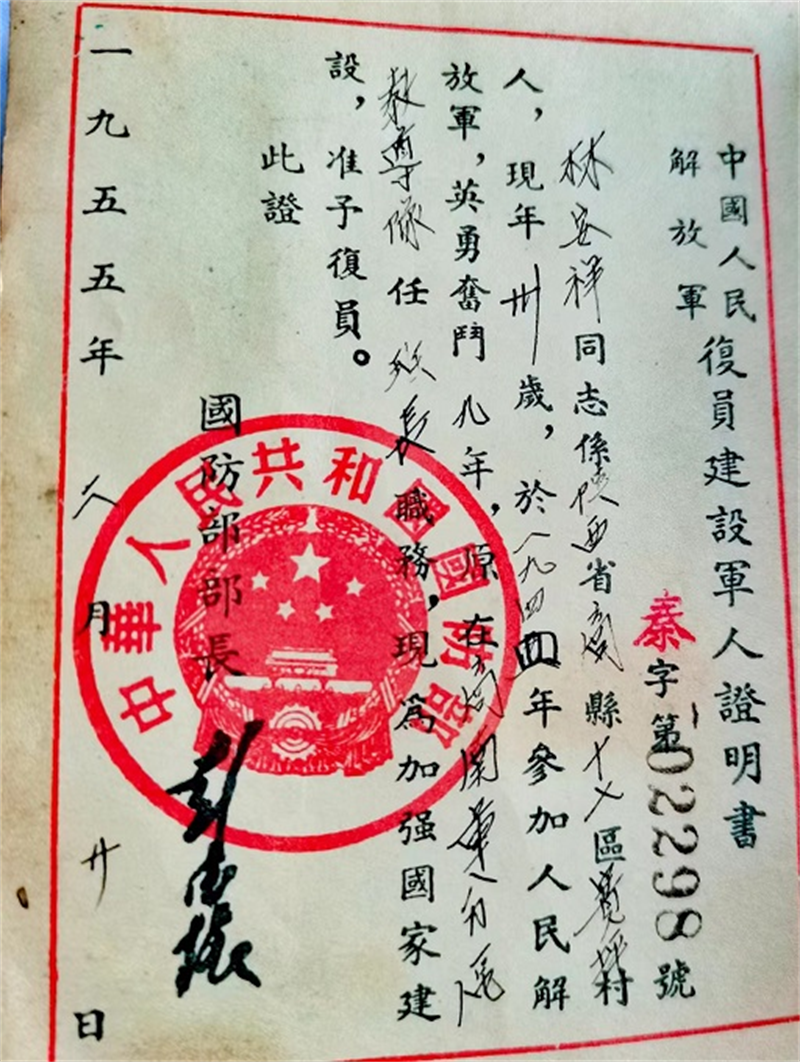 中國人民解放軍復員建設軍人證明書
秦字第022298號
林安祥同志係陝西省商縣十区村
人，現年卅歲，於一九四四年參加人民解
放軍，英勇奮鬥九年，原在商
教導隊任隊長職務，現為加强國家建
設，准予復員。
此證
國防部部長
彭德懷
一九五五年 月廿日
中華人民共和國國防部